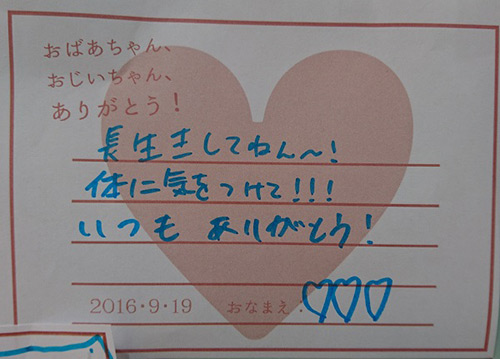 おばあちゃん、
おじいちゃん、
ありがとう！
長生きしてねん〜！
体に気をつけて!!!
いつも ありがとう！
2016・9・19 おなまえ：♡♡♡